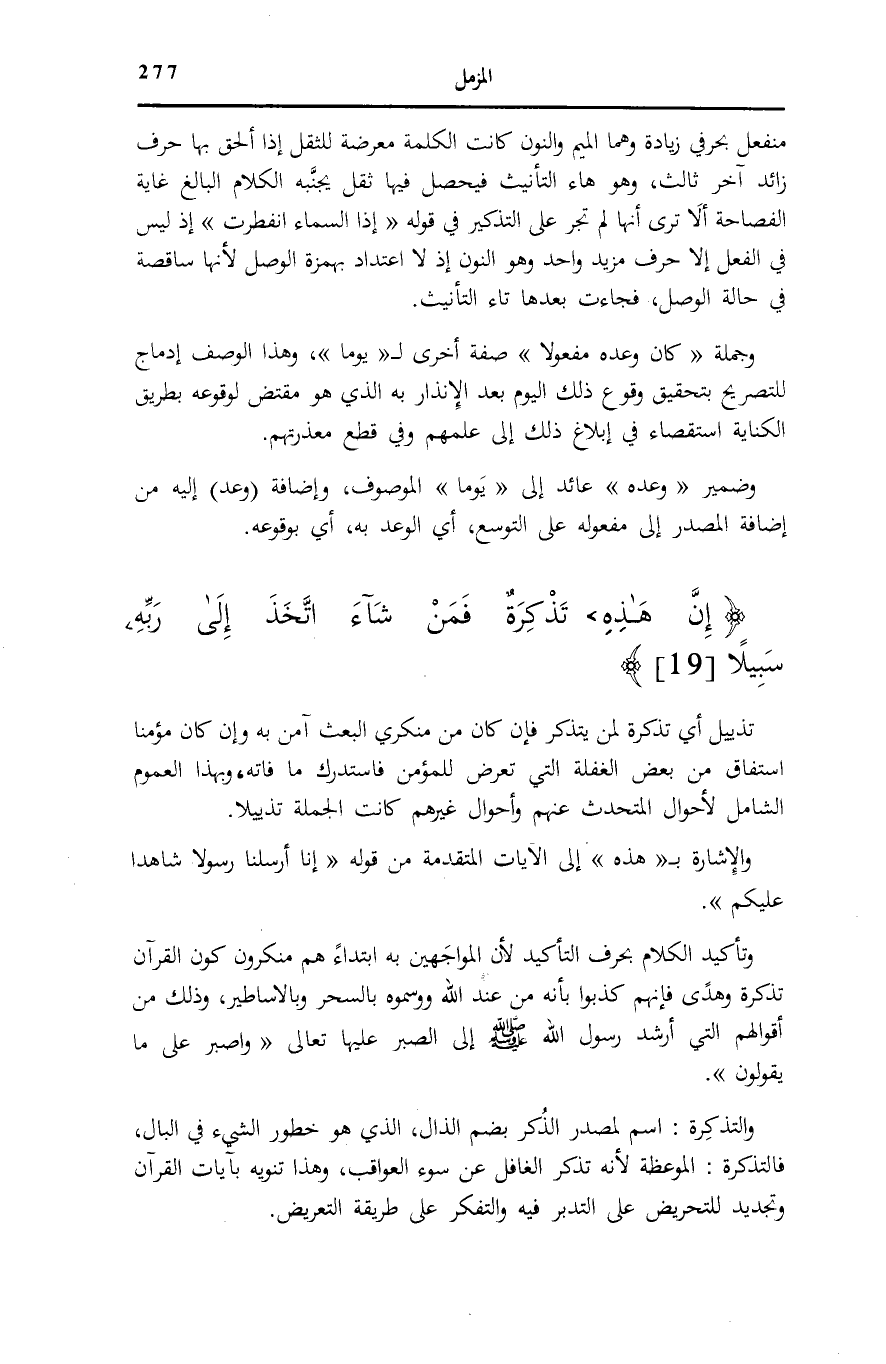 المزمل 277
منفعل بحرفي زيادة وهما الميم والنون كانت الكلمة معرضة للثقل إذا ألحق بها حرف
زائد آخر ثالث، وهو هاء التأنيث فيحصل فيها ثقل يجنَّبه الكلام البالغ غاية
الفصاحة ألَا ترى أنها لم تجر على التذكير في قوله « إذا السماء انفطرت » إذ ليس
في الفعل إلا حرف مزيد واحد وهو النون إذ لا اعتداد بهمزة الوصل لأنها ساقصة
في حالة الوصل، فجاءت بعدها تاء التأنيث.
وجملة « كان وعده مفعولا » صفة أخرى لـ« يوما »، وهذا الوصف إدماج
للتصريح بتحقيق وقوع ذلك اليوم بعد الإنذار به الذي هو مقتض لوقوعه بطريق
الكناية استقصاء في إبلاغ ذلك إلى علمهم وفي قطع معذرتهم.
وضمير « وعده » عائد إلى « يَوما » الموصوف، وإضافة (وعد) إليه من
إضافة المصدر إلى مفعوله على التوسع، أي الوعد به، أي بوقوعه.
﴿ إِنَّ هَـٰذِهِۦ تَذْكِرَةٌ فَمَنْ شَآءَ اتَّخَذَ إِلَىٰ رَبِّهِۦ
سَبِيلًا [19] ﴾
تذييل أي تذكرة لمن يتذكر فإن كان من منكري البعث آمن به وإن كان مؤمنا
استفاق من بعض الغفلة التي تعرض للمؤمن فاستدرك ما فاته، وبهذا العموم
الشامل لأحوال المتحدث عنهم وأحوال غيرهم كانت الجملة تذييلا.
والإشارة بـ« هذه » إلى الآيات المتقدمة من قوله « إنا أرسلنا رسولا شاهدا
عليكم ».
وتأكيد الكلام بحرف التأكيد لأن المواجَهين به ابتداءً هم منكرون كون القرآن
تذكرة وهدًى فإنهم كذبوا بأنه من عند الله ووسموه بالسحر وبالاساطير، وذلك من
أقوالهم التي أرشد رسول الله ﷺ إلى الصبر عليها تعالى « واصبر على ما
يقولون ».
والتذكِرة : اسم لمصدر الذُكر بضم الذال، الذي هو خطور الشيء في البال،
فالتذكرة : الموعظة لأنه تذكر الغافل عن سوء العواقب، وهذا تنويه بآيات القرآن
وتجديد للتحريض على التدبر فيه والتفكر على طريقة التعريض.